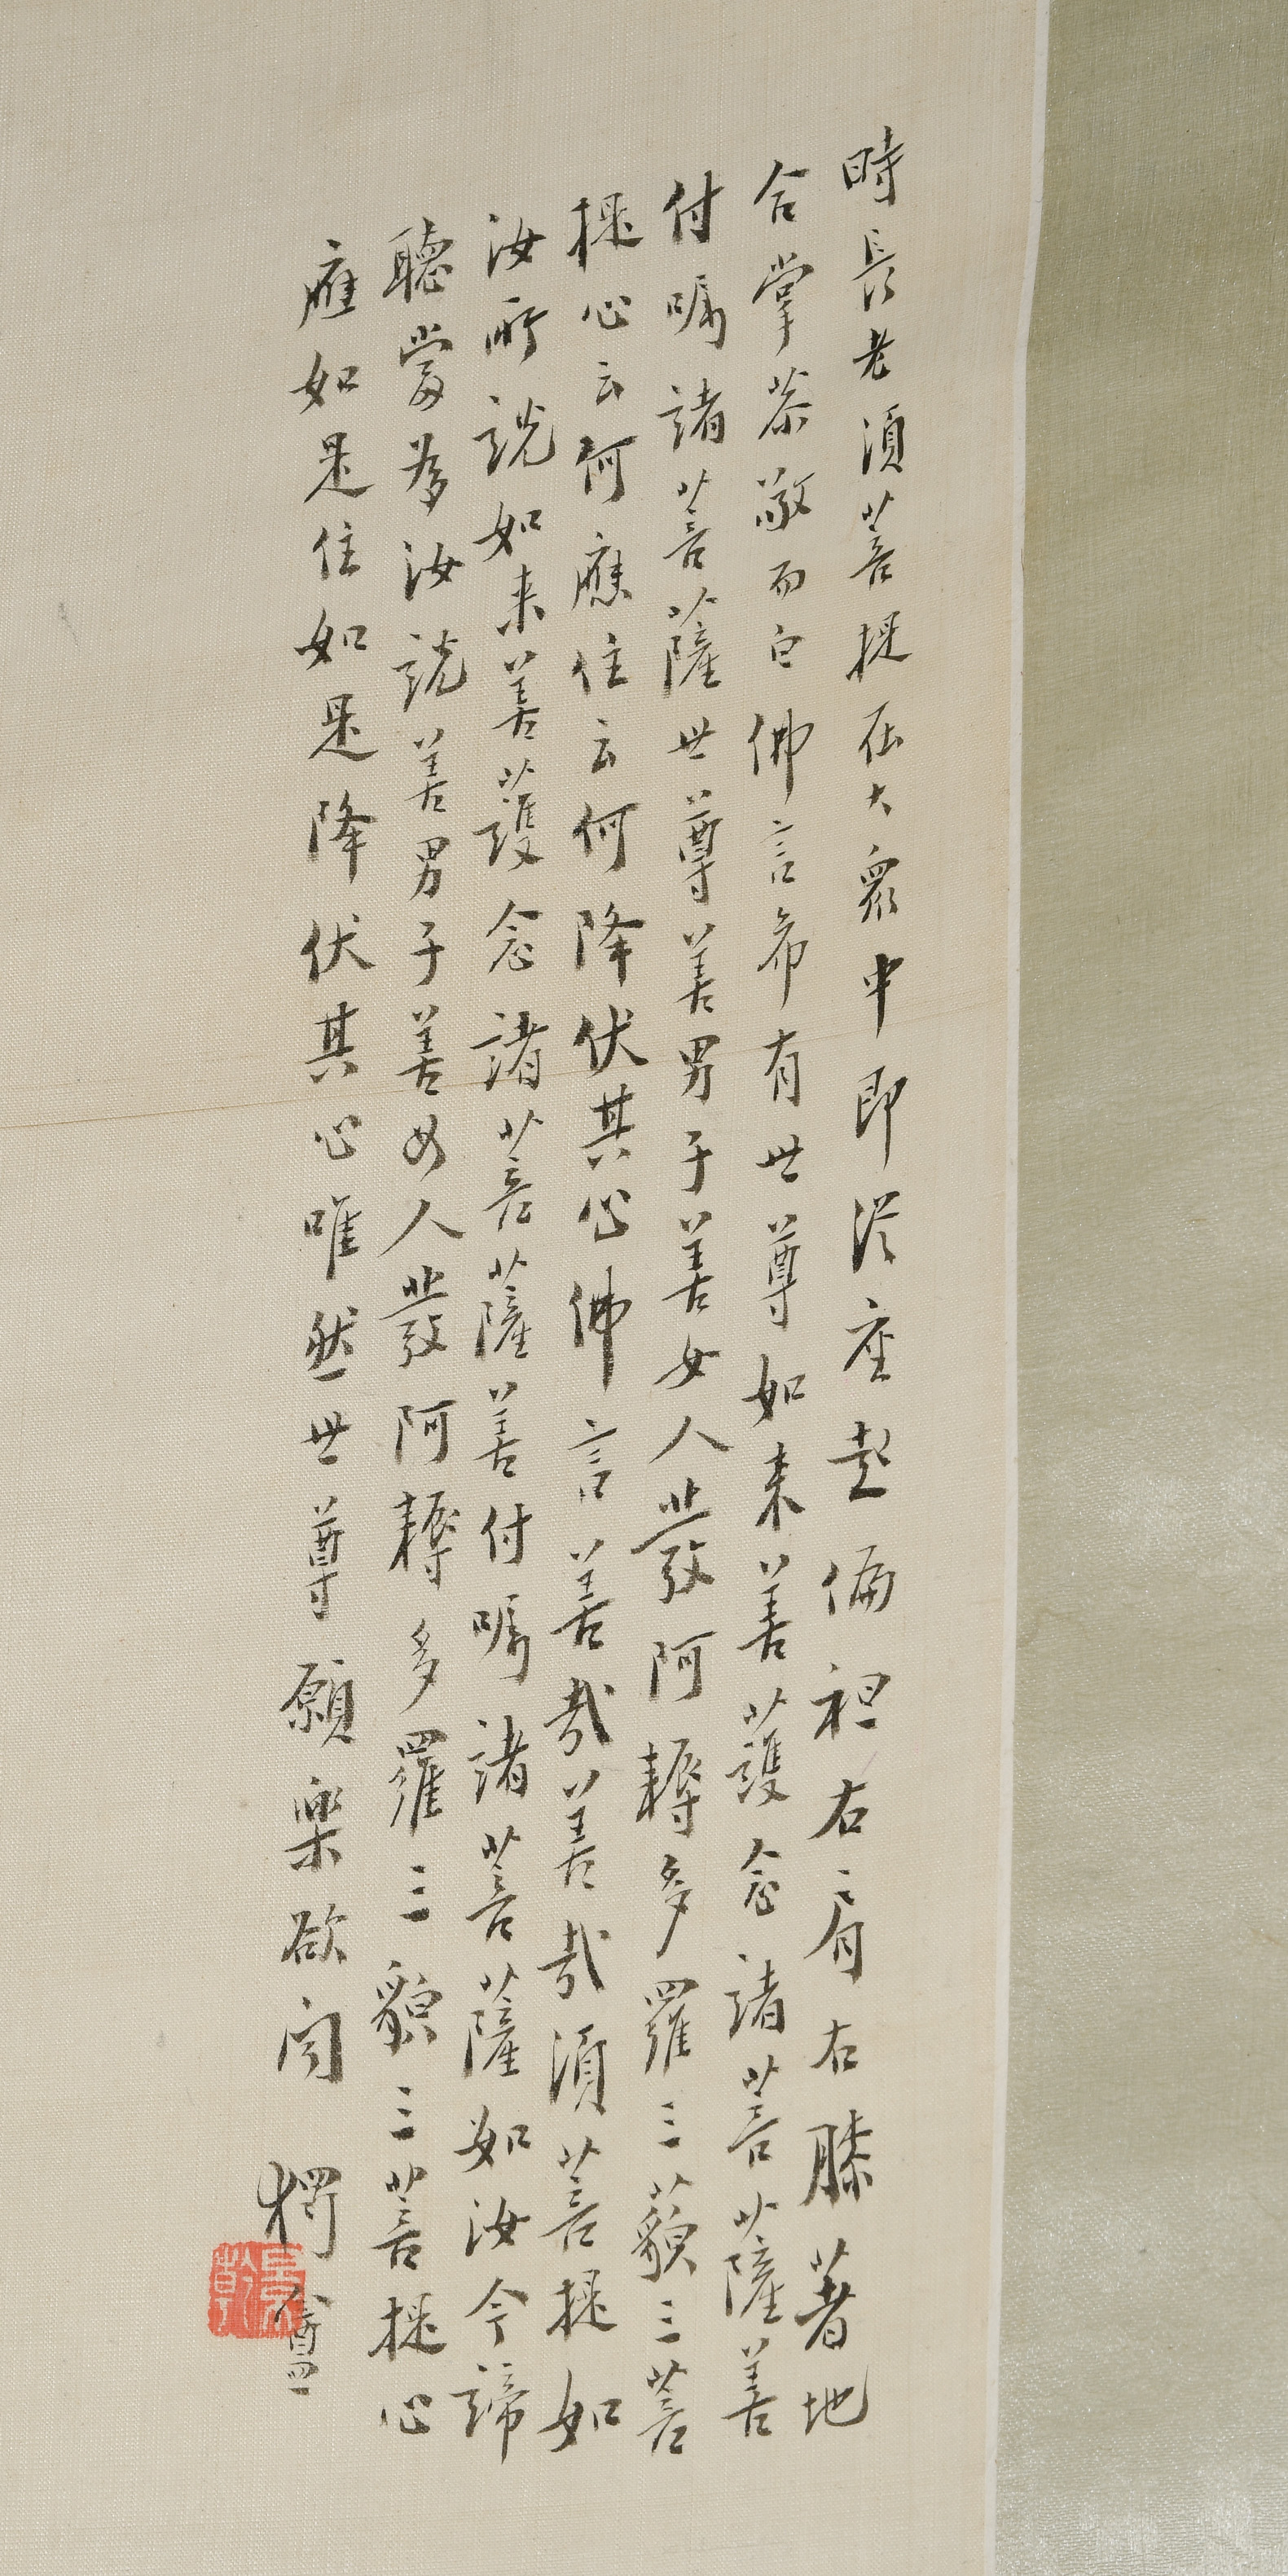 時長老須菩提在大衆中即從座起偏袒右肩右膝著地
合掌恭敬而白佛言希有世尊如来善護念諸菩薩善
付嘱諸菩薩世尊善男子善女人發阿耨多羅三藐三菩
提心云何應住云何降伏其心佛言善哉善哉須菩提如
汝所說如来善護念諸菩薩善付嘱諸菩薩如汝今諦
聽當為汝說善男子善女人發阿耨多羅三藐三菩提心
應如是住如是降伏其心唯然世尊願樂欲闻